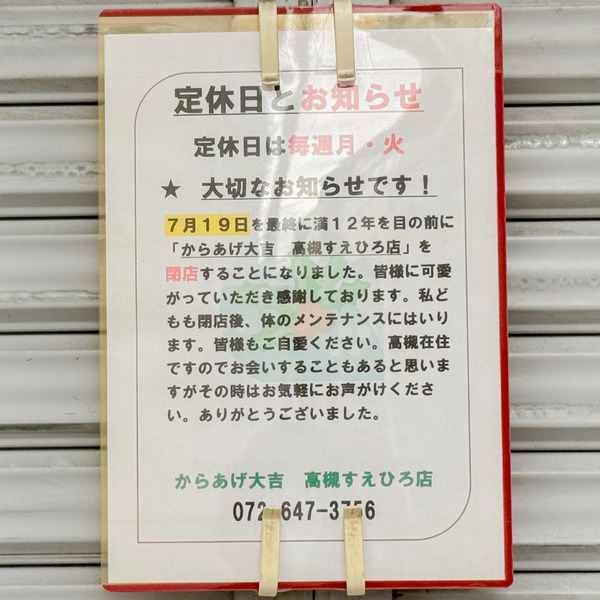 定休日とお知らせ
定休日は毎週月・火
★ 大切なお知らせです！
7月19日を最終に満12年を目の前に
「からあげ大吉　高槻すえひろ店」を
閉店することになりました。皆様に可愛
がっていただき感謝しております。私ど
もも閉店後、体のメンテナンスにはいり
ます。皆様もご自愛ください。高槻在住
ですのでお会いすることもあると思いま
すがその時はお気軽にお声がけくださ
い。ありがとうございました。
からあげ大吉　高槻すえひろ店
072-647-3756